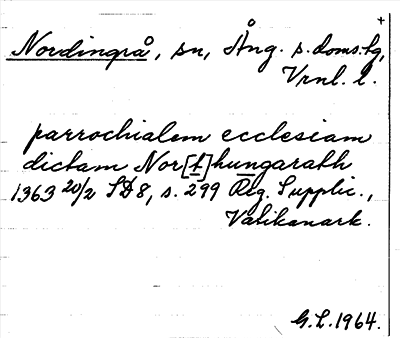 +
Nordingrå, sn, Ång. s. doms.lg,
Vrnl. l.
parrochialem ecclesiam
dictam Nor[t]hungarath
1363 20/2 SD8, s. 299 Reg. Supplic.,
Vatikanark.
G.L. 1964.